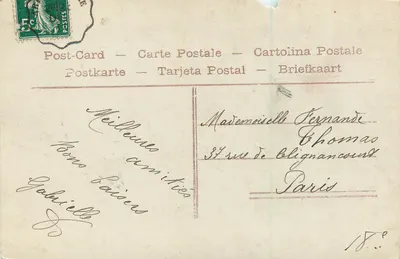 Post-Card — Carte Postale — Cartolina Postale
Postkarte — Tarjeta Postal — Briefkaart
Meilleures
amitiés
Bons baisers
Gabrielle
Mademoiselle Fernande
Thomas
37 rue de Clignancourt
Paris
18e